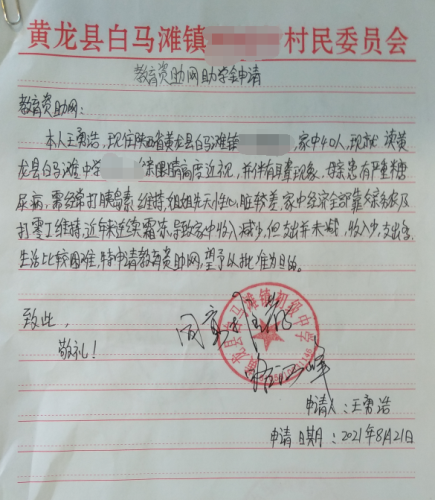 黄龙县白马滩镇 村民委员会
教育资助网助学金申请
教育资助网：
本人王勇浩，现住陕西省黄龙县白马滩镇 ，家中40人，现就读黄
龙县白马滩中学 眼睛高度近视，并伴有耳聋现象，母亲患有严重糖
尿病，需经常打胰岛素维持，姐姐先天性心脏较差，家中经济全部靠父亲务农及
打零工维持，近年来连续霜冻，导致家中收入减少，但支出并未减，收入少，支出多，
生活比较困难，特申请教育资助网，望予以批准为日的。
致此，
敬礼！
同意
黄龙县白马滩镇初级中学
申请人：王勇浩
申请日期：2021年8月21日